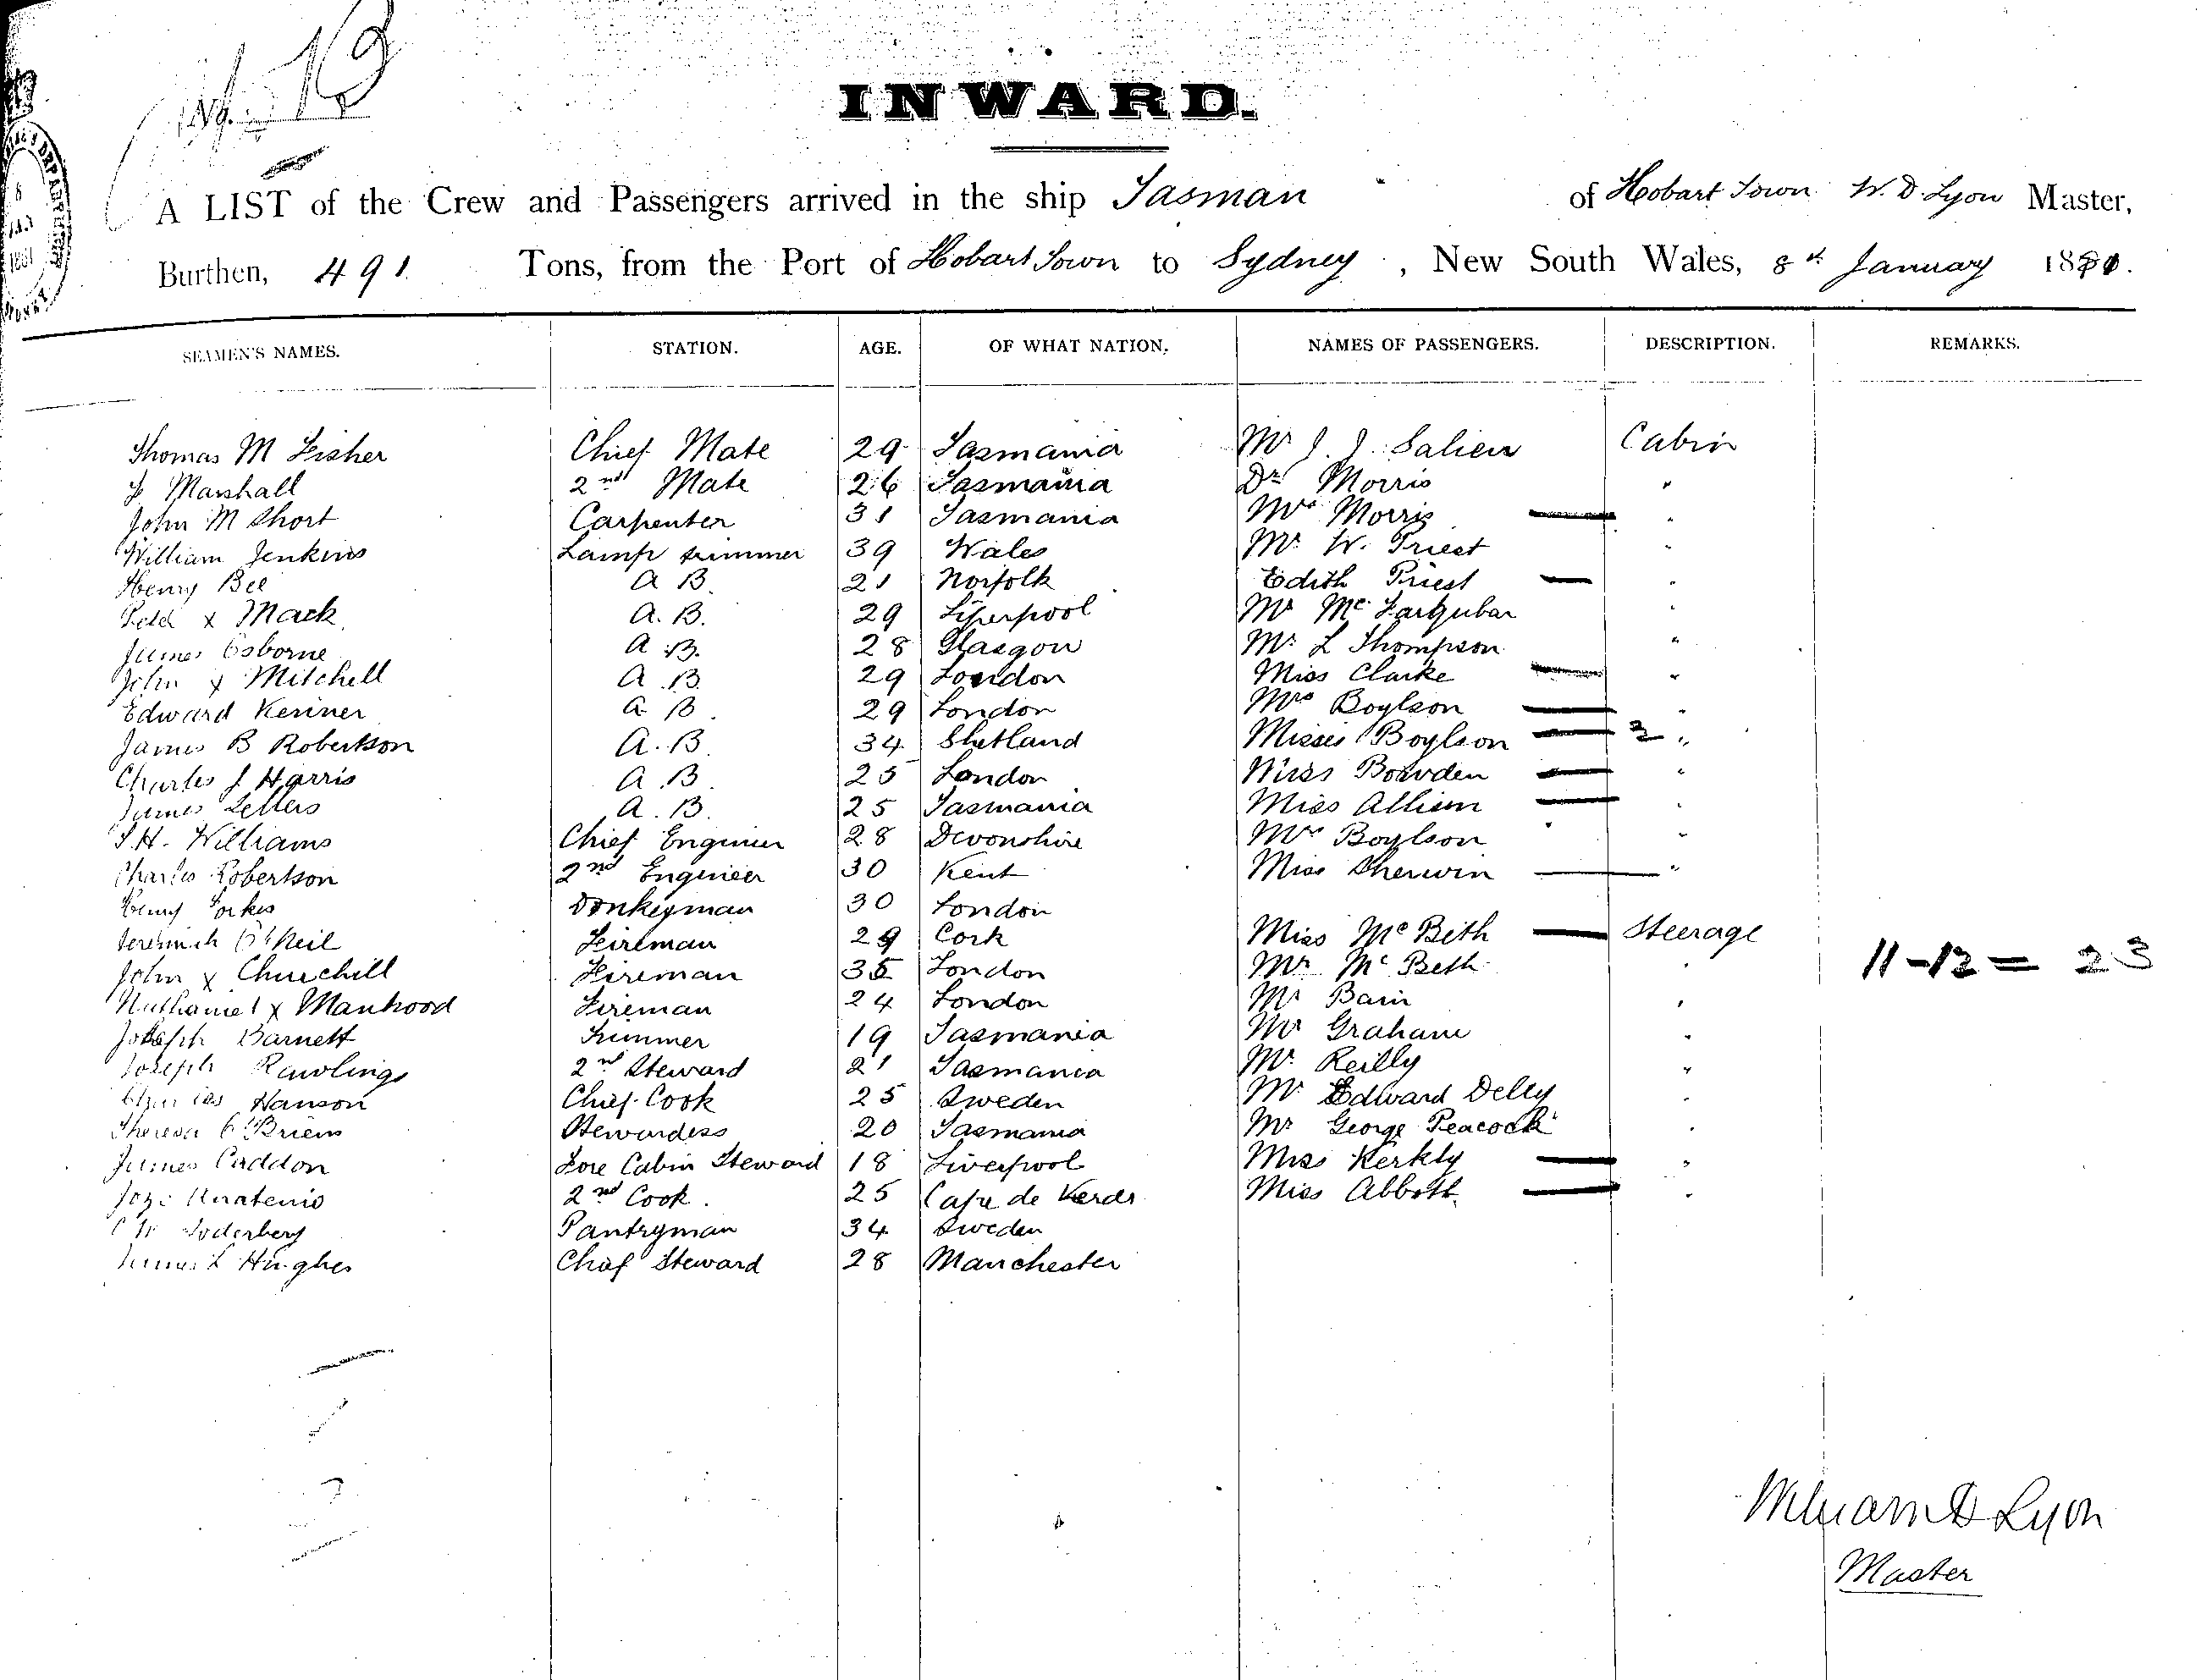 No. 19
INWARD.
A LIST of the Crew and Passengers arrived in the ship Tasman of Hobart Town W. D. Lyon Master,
Burthen, 491 Tons, from the Port of Hobart Town to Sydney, New South Wales, 8th January 1881.
SEAMEN'S NAMES. STATION. AGE. OF WHAT NATION. NAMES OF PASSENGERS. DESCRIPTION. REMARKS.
Thomas M Fisher Chief Mate 29 Tasmania Mr J. J. Salier Cabin
J Marshall 2nd Mate 26 Tasmania Dr Morris "
John M Short Carpenter 31 Tasmania Mrs Morris — "
William Jenkins Lamp trimmer 39 Wales Mr W. Priest "
Henry Bee A B. 21 Norfolk Edith Priest — "
Peter x Mack A. B. 29 Liverpool Mr Mc Farquhar "
James Osborne A. B. 28 Glasgow Mr L Thompson "
John x Mitchell A. B. 29 London Miss Clarke — "
Edward Keriner A B. 29 London Mrs Boylson — "
James B Robertson A. B. 34 Shetland Misses Boylson — 2 "
Charles J Harris A. B. 25 London Miss Bowden — "
James Letters A. B. 25 Tasmania Miss Allison — "
J. H. Williams Chief Engineer 28 Devonshire Mr Boylson "
Charles Robertson 2nd Engineer 30 Kent Miss Sherwin — "
Henry Donkeyman 30 London
Jeremiah O'Neil Fireman 29 Cork Miss McBeth — Steerage
John x Churchill Fireman 35 London Mr McBeth " 11-12 = 23
Nathaniel x Manhood Fireman 24 London Mr Bain "
Joseph Barnett Trimmer 19 Tasmania Mr Graham "
Joseph Rawlings 2nd Steward 21 Tasmania Mr Reilly "
Charles Hanson Chief Cook 25 Sweden Mr Edward Delly "
Theresa O'Brien Stewardess 20 Tasmania Mr George Peacock "
James Caddon Fore Cabin Steward 18 Liverpool Miss Kerkly — "
2nd Cook. 25 Cape de Verds Miss Abbott — "
Soderberg Pantryman 34 Sweden
James L Hughes Chief Steward 28 Manchester
William D Lyon
Master